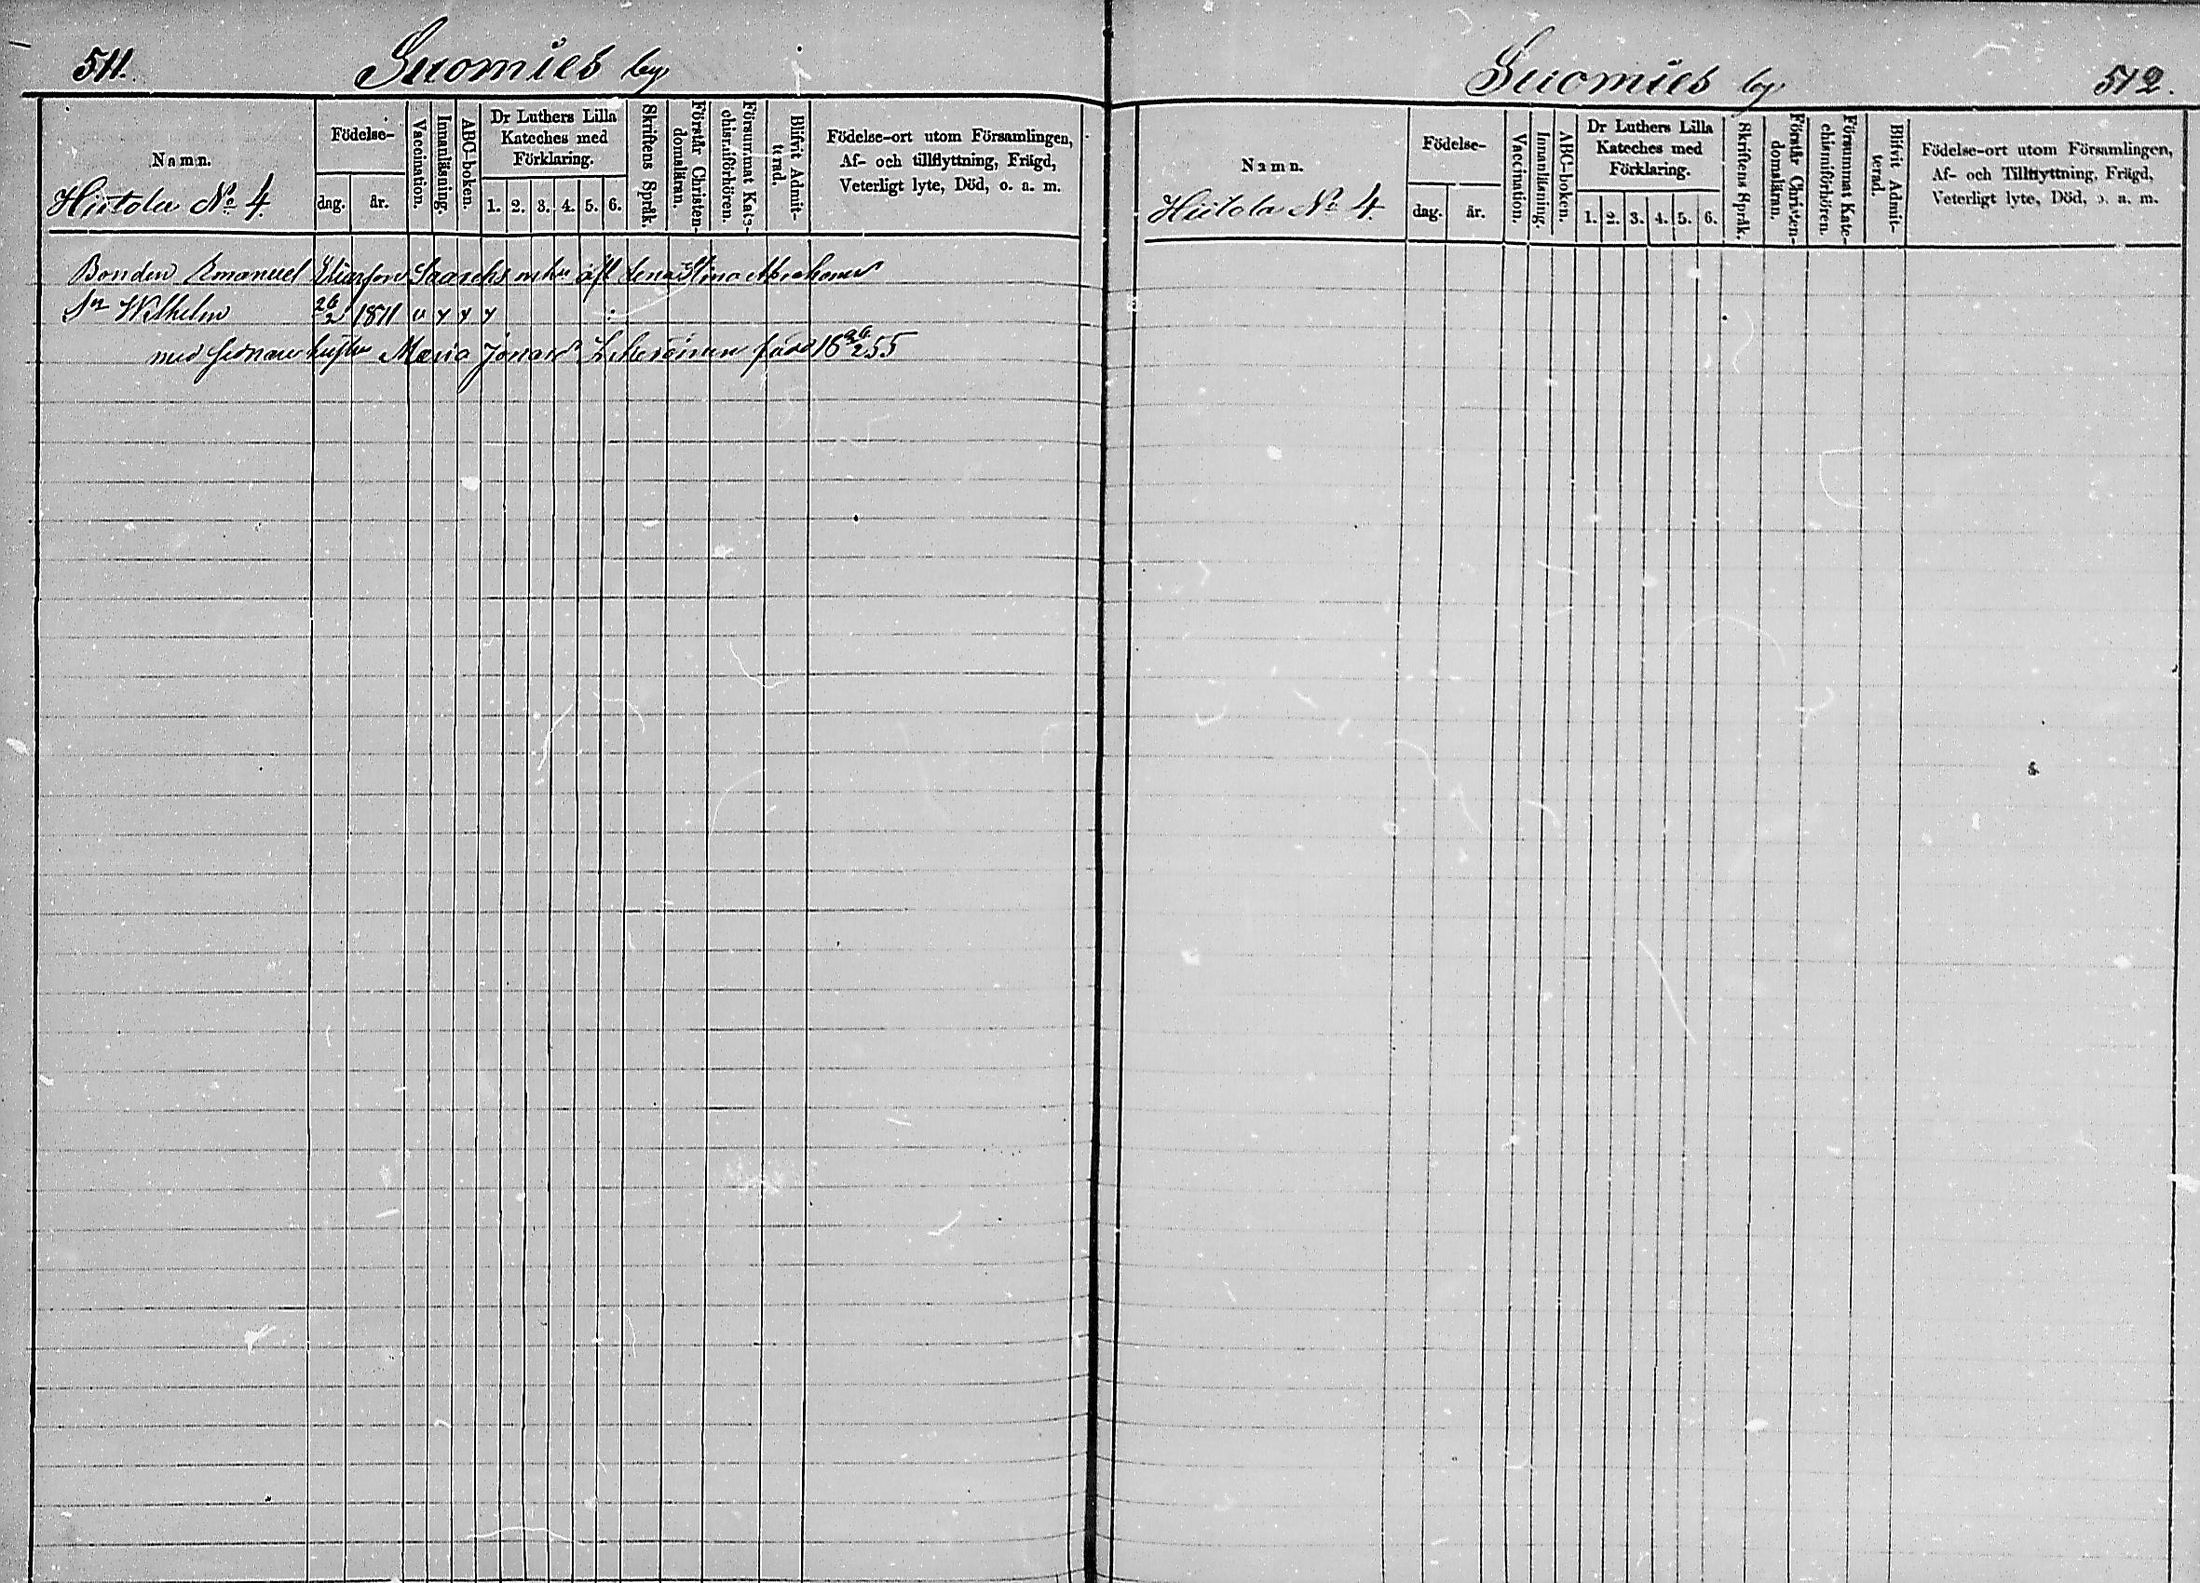 511.
Suomies by
Namn.
Hiitola No 4.
Födelse-
dag.
år.
Vaccination.
Innanläsning.
ABC-boken.
Dr Luthers Lilla
Kateches med
Förklaring.
1. 2. 3. 4. 5. 6.
Skriftens Språk.
Förstår Christen-
domsläran.
Försummat Kate-
chismiförhören.
Blifvit Admit-
terad.
Födelse-ort utom Församlingen,
Af- och tillflyttning, Frägd,
Veterligt lyte, Död, o. a. m.
Bonden Emanuel
Lena Stina
Sn Wilhelm 26/2 1871 v y y y
med Maria född 18 26/2 55
Suomies by
512.
Namn.
Hiitola No 4
Födelse-
dag.
år.
Vaccination.
Innanläsning.
ABC-boken.
Dr Luthers Lilla
Kateches med
Förklaring.
1. 2. 3. 4. 5. 6.
Skriftens Språk.
Förstår Christen-
domsläran.
Försummat Kate-
chismiförhören.
Blifvit Admit-
terad.
Födelse-ort utom Församlingen,
Af- och Tillflyttning, Frägd,
Veterligt lyte, Död, o. a. m.